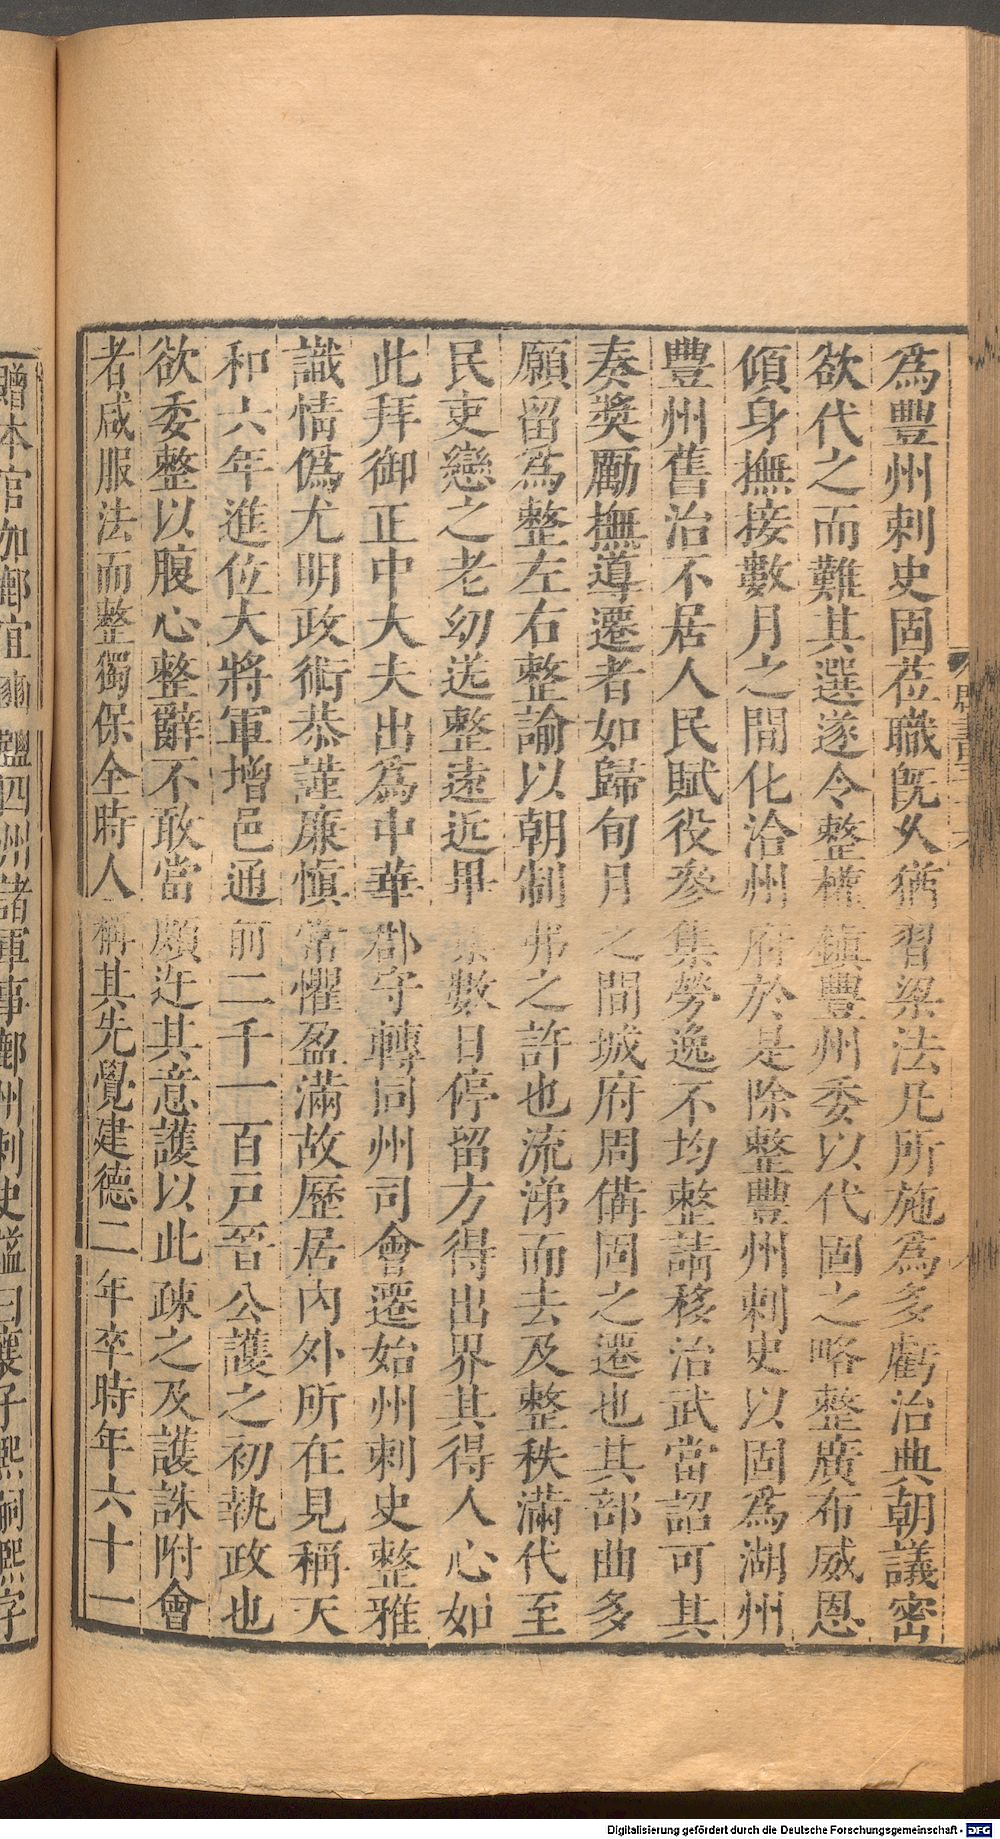 爲豐州刺史固莅職旣久猶習梁法凡所施爲多虧治典朝議密
欲代之而難其選遂令整權鎮豐州委以代固之略整廣布威恩
傾身撫接數月之間化洽州府於是除整豐州刺史以固爲湖州
豐州舊治不居人民賦役參集勞逸不均整請移治武當詔可其
奏獎勵撫導遷者如歸旬月之間城府周備固之遷也其部曲多
願留爲整左右整諭以朝制弗之許也流涕而去及整秩滿代至
民吏戀之老幼送整遠近畢集數日停留方得出界其得人心如
此拜御正中大夫出爲中華郡守轉同州司會遷始州刺史整雅
識情僞尤明政術恭謹廉慎常懼盈滿故歷居內外所在見稱天
和六年進位大將軍增邑通前二千一百戸晉公護之初執政也
欲委整以腹心整辭不敢當頗迕其意護以此疎之及護誅附會
者咸服法而整獨保全時人稱其先覺建德二年卒時年六十一
贈本官加鄜宜
四州諸軍事鄜州刺史諡曰襄子熙嗣熙字
Digitalisierung gefördert durch die Deutsche Forschungsgemeinschaft - DFG